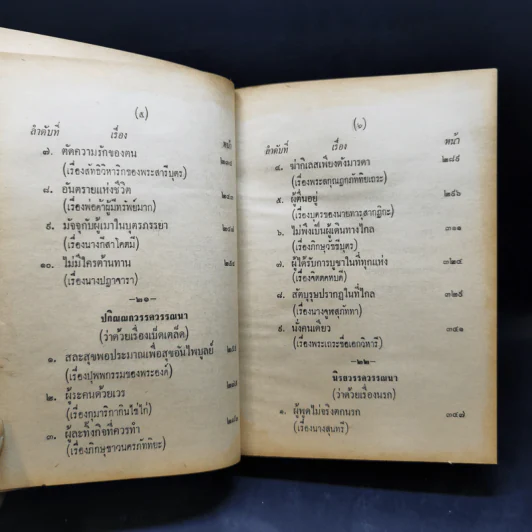 (๕)
ลำดับที่ เรื่อง หน้า
๗. ตัดความรักของตน
(เรื่องสัทธิวิหาริกของพระสารีบุตร)
๘. อันตรายแห่งชีวิต
(เรื่องพ่อค้าผู้มีทรัพย์มาก)
๙. มัจจุกับผู้เมาในบุตรภรรยา
(เรื่องนางกีสาโคตมี)
๑๐. ไม่มีใครต้านทาน
(เรื่องนางปฏาจารา)
—๒๑—
ปกิณณกวรรควรรณนา
(ว่าด้วยเรื่องเบ็ดเตล็ด)
๑. สละสุขพอประมาณเพื่อสุขอันไพบูลย์
(เรื่องปุพพกรรมของพระองค์)
๒. ผู้ระคนด้วยเวร
(เรื่องกุมาริกากินไข่ไก่)
๓. ผู้ละทิ้งกิจที่ควรทำ
(เรื่องภิกษุชาวนครภัททิยะ)
(๖)
ลำดับที่ เรื่อง หน้า
๔. ฆ่ากิเลสเพียงดังมารดา ๒๘๙
(เรื่องพระลกุณฏกภัททิยเถระ)
๕. ผู้ตื่นอยู่ ๒๙๖
(เรื่องบุตรของนายทารุสากฏิกะ)
๖. ไม่พึงเป็นผู้เดินทางไกล ๓๑๑
(เรื่องภิกษุวัชชีบุตร)
๗. ผู้ได้รับการบูชาในที่ทุกแห่ง ๓๒๔
(เรื่องจิตตคหบดี)
๘. สัตบุรุษปรากฏในที่ไกล ๓๒๕
(เรื่องนางจูฬสุภัททา)
๙. นั่งคนเดียว ๓๔๑
(เรื่องพระเถระชื่อเอกวิหารี)
—๒๒—
นิรยวรรควรรณนา
(ว่าด้วยเรื่องนรก)
๑. ผู้พูดไม่จริงตกนรก ๓๔๗
(เรื่องนางสุนทรี)